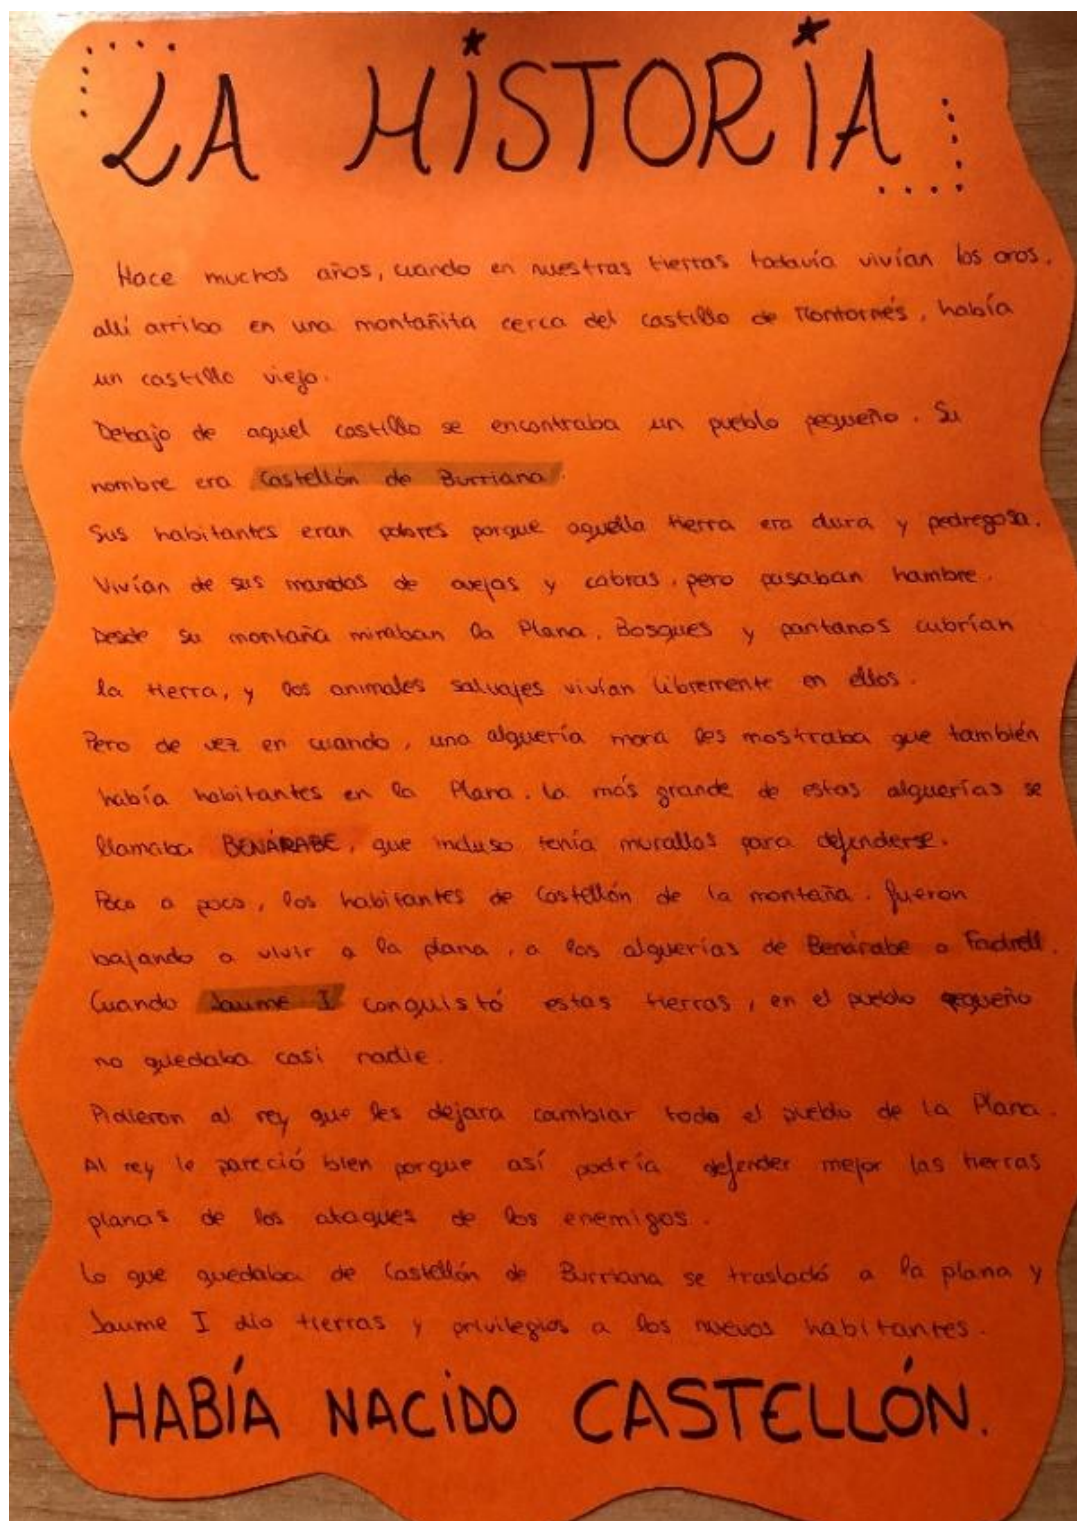 LA HISTORIA
Hace muchos años, cuando en nuestras tierras todavía vivían los oros,
allí arriba en una montañita cerca del castillo de Montornés, había
un castillo viejo.
Debajo de aquel castillo se encontraba un pueblo pequeño. Su
nombre era Castellón de Burriana.
Sus habitantes eran pobres porque aquella tierra era dura y pedregosa.
Vivían de sus manadas de ovejas y cabras, pero pasaban hambre.
Desde su montaña miraban la Plana. Bosques y pantanos cubrían
la tierra, y los animales salvajes vivían libremente en ellos.
Pero de vez en cuando, una alquería mora les mostraba que también
había habitantes en la Plana. La más grande de estas alquerías se
llamaba BENÁRABE, que incluso tenía murallas para defenderse.
Poco a poco, los habitantes de Castellón de la montaña. fueron
bajando a vivir a la plana, a las alquerías de Benárabe o Fadrell.
Cuando Jaume I conquistó estas tierras, en el pueblo pequeño
no quedaba casi nadie.
Pidieron al rey que les dejara cambiar todo el pueblo de la Plana.
Al rey le pareció bien porque así podría defender mejor las tierras
planas de los ataques de los enemigos.
Lo que quedaba de Castellón de Burriana se trasladó a la plana y
Jaume I dio tierras y privilegios a los nuevos habitantes.
HABÍA NACIDO CASTELLÓN.